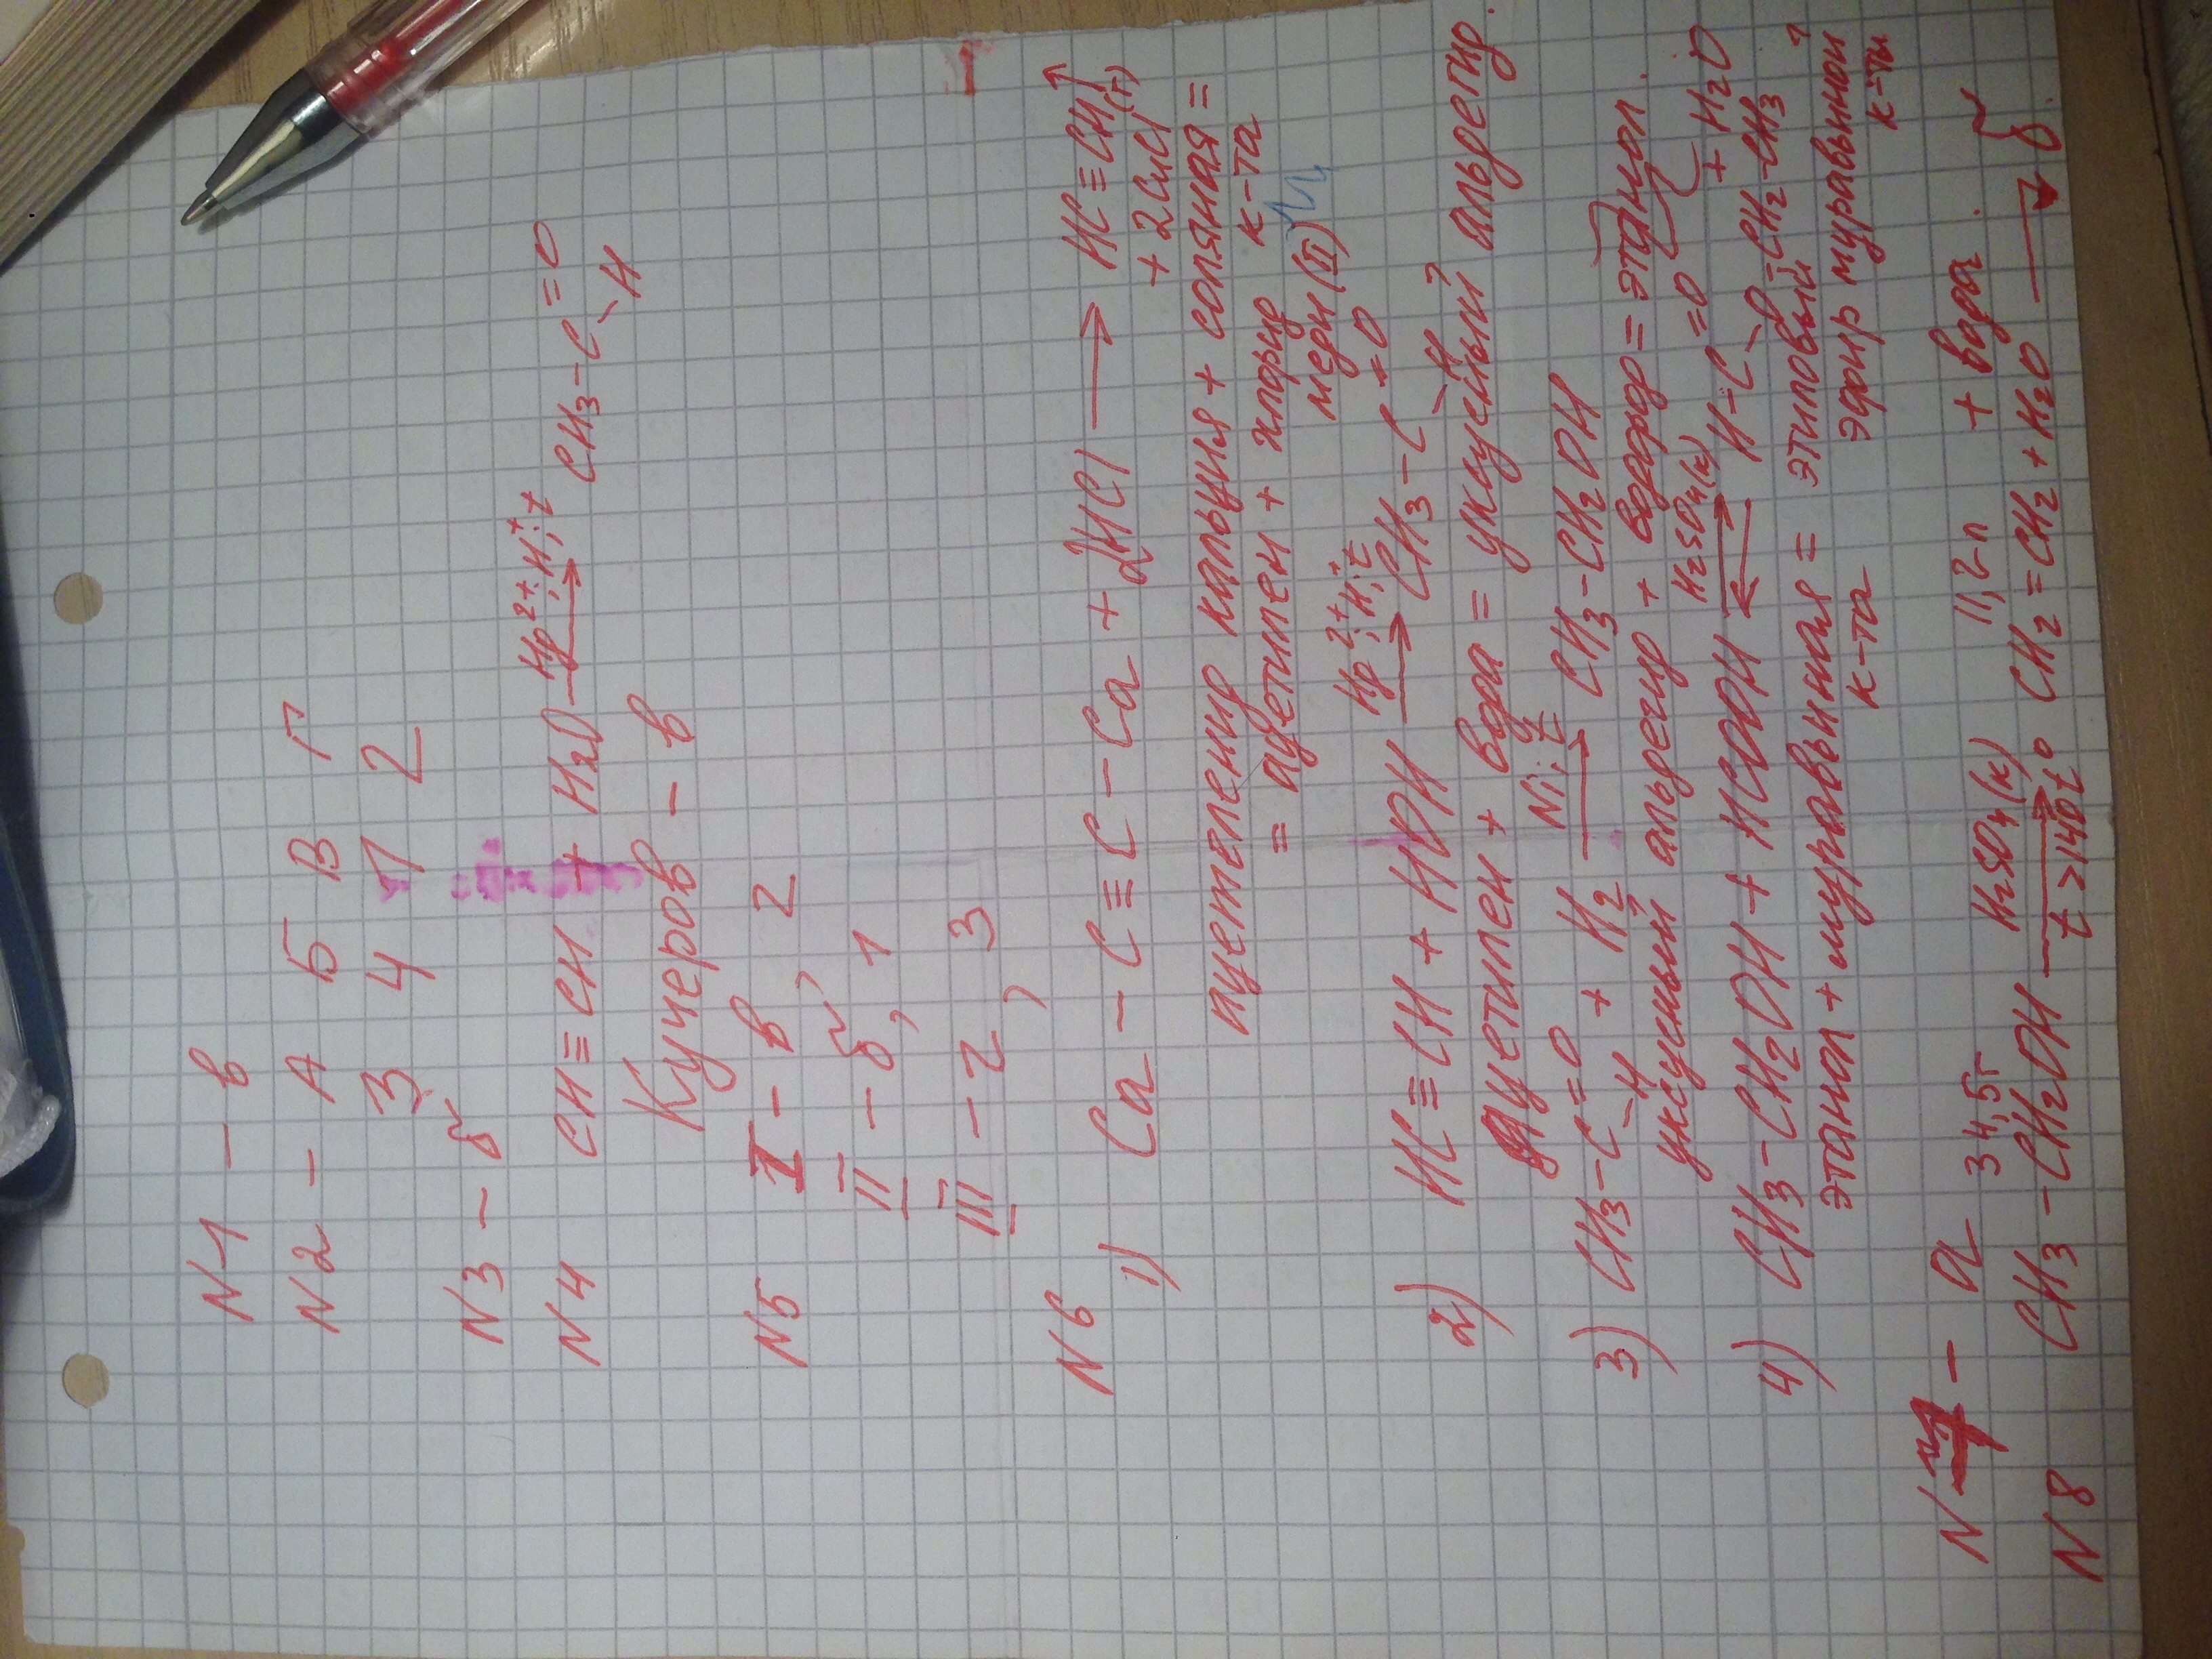 N1 - в
N2 - А Б В Г
3 4 1 2
N3 - б
N4 CH≡CH + H2O Hg2+; H+; t → CH3-C=O
-H
Кучеров - в
N5 I - в, 2
II - б, 1
III - г, 3
N6
1) Ca - C≡C - Ca + 2HCl → HC≡CH↑
+ 2CuCl(т)
ацетиленид кальция + соляная =
= ацетилен + хлорид к-та
меди (II)
2) HC≡CH + HOH Hg2+; H+; t → CH3-C=O
-H
Ацетилен + вода = уксусный альдегид.
3) CH3-C=O -H + H2 Ni; t → CH3-CH2OH
уксусный альдегид + водород = этанол.
4) CH3-CH2OH + HCOOH H2SO4(к) ⇄ H-C=O -O-CH2-CH3 + H2O
этанол + муравьиная = этиловый
к-та эфир муравьиной
к-ты
N7 - а 34,5г 11,2л + вода.
N8 CH3-CH2OH H2SO4(к) t>140t° → CH2=CH2 + H2O → б.